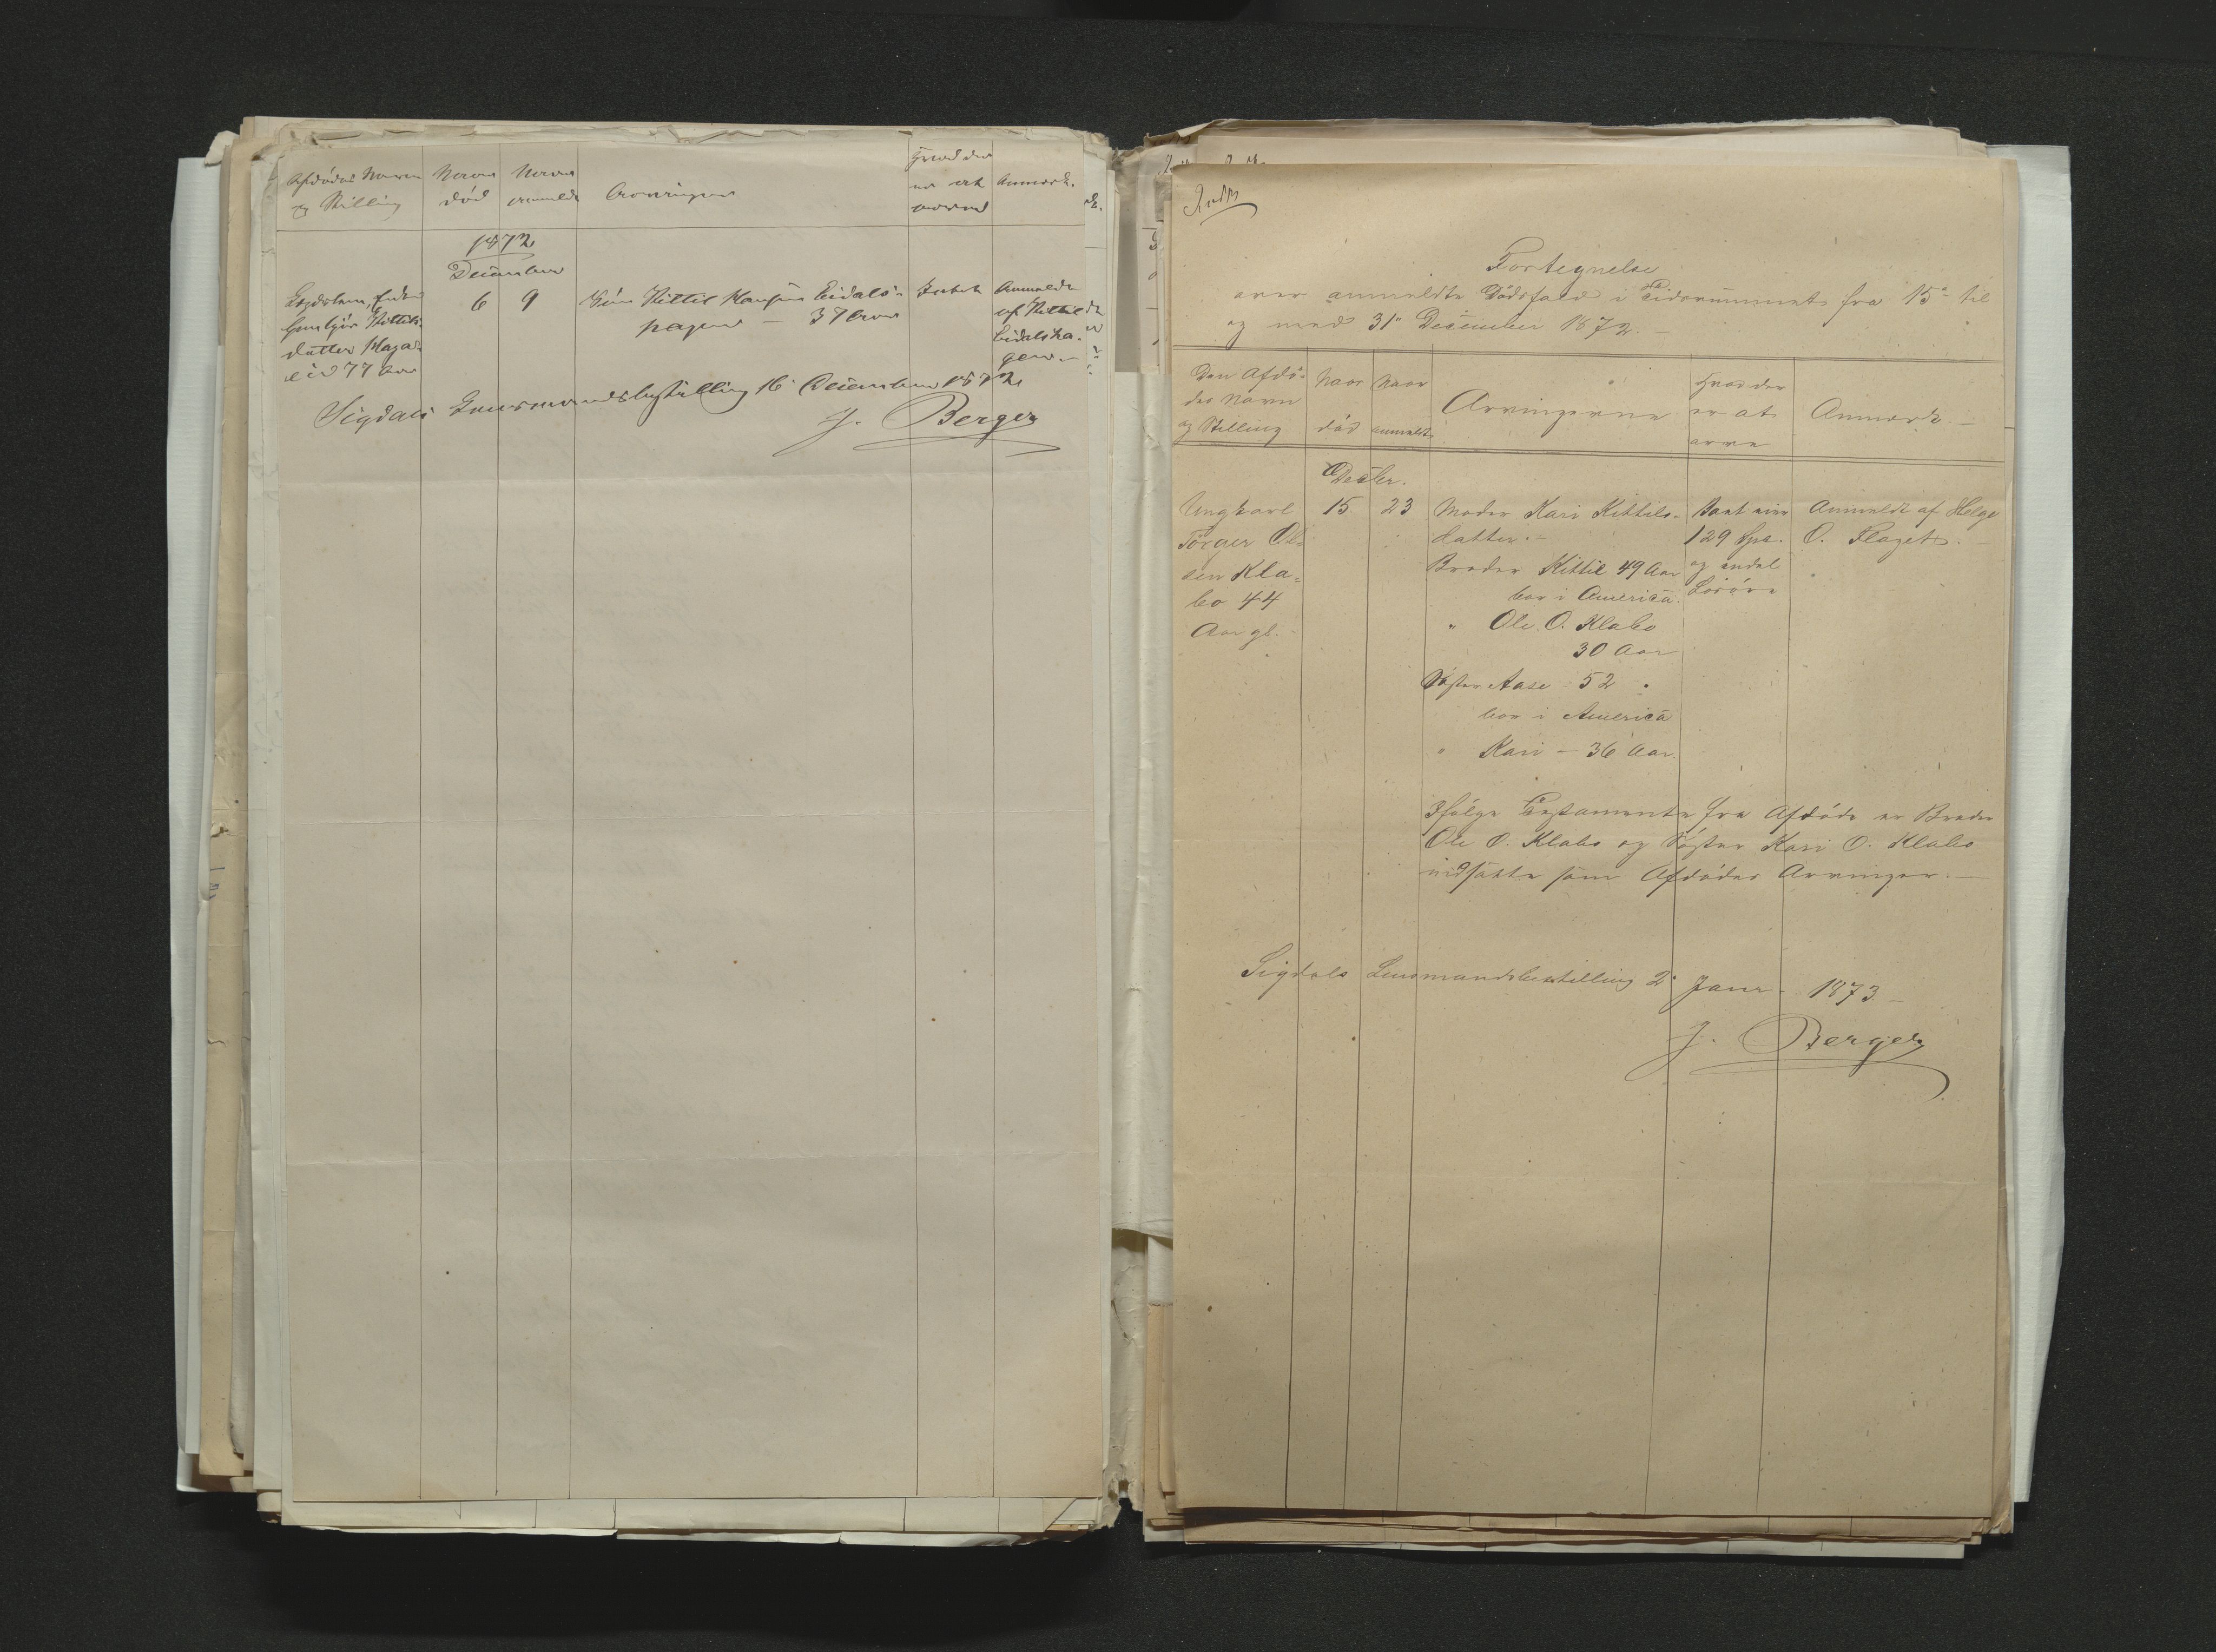 Afdødes Navn
og Stilling
Naar
død
Naar
anmeldt
Arvinger
Hvad der
er at
arve
Anmærk.
1872
December
Enke
Gunbjør Kittils-
datter Haga-
eie 77 Aar
6
9
Søn Kittil Hansen Eidals-
hagen — 37 Aar
Intet
Anmeldt
af Kittil
Eidalsha-
gen.-
Sigdals Lensmandsbestilling 16 December 1872
J. Berger
Fortegnelse
over anmeldte Dødsfald i Tidsrummet fra 15de til
og med 31te December 1872. —
Den Afdø-
des Navn
og Stilling
Naar
død
Naar
anmeldt
Arvingerne
Hvad der
er at
arve
Anmærk. —
Decbr.
Ungkarl
Torger Ol-
sen Kla-
bo 44
Aar gl. -
15
23
Moder Kari Kittils-
datter. -
Broder Kittil 49 Aar
bor i America.
" Ole O. Klabo
30 Aar
Søster Aase - 52 "
bor i America
" Kari - 36 Aar.
129 Spd.
og endel
Løsøre
Anmeldt af Helge
O. Flaget. -
Ifølge Testamente fra Afdøde er Broder
Ole O. Klabo og Søster Kari O. Klabo
indsatte som Afdødes Arvinger. —
Sigdals Lensmandsbestilling 2 Janr. 1873 -
J. Berger